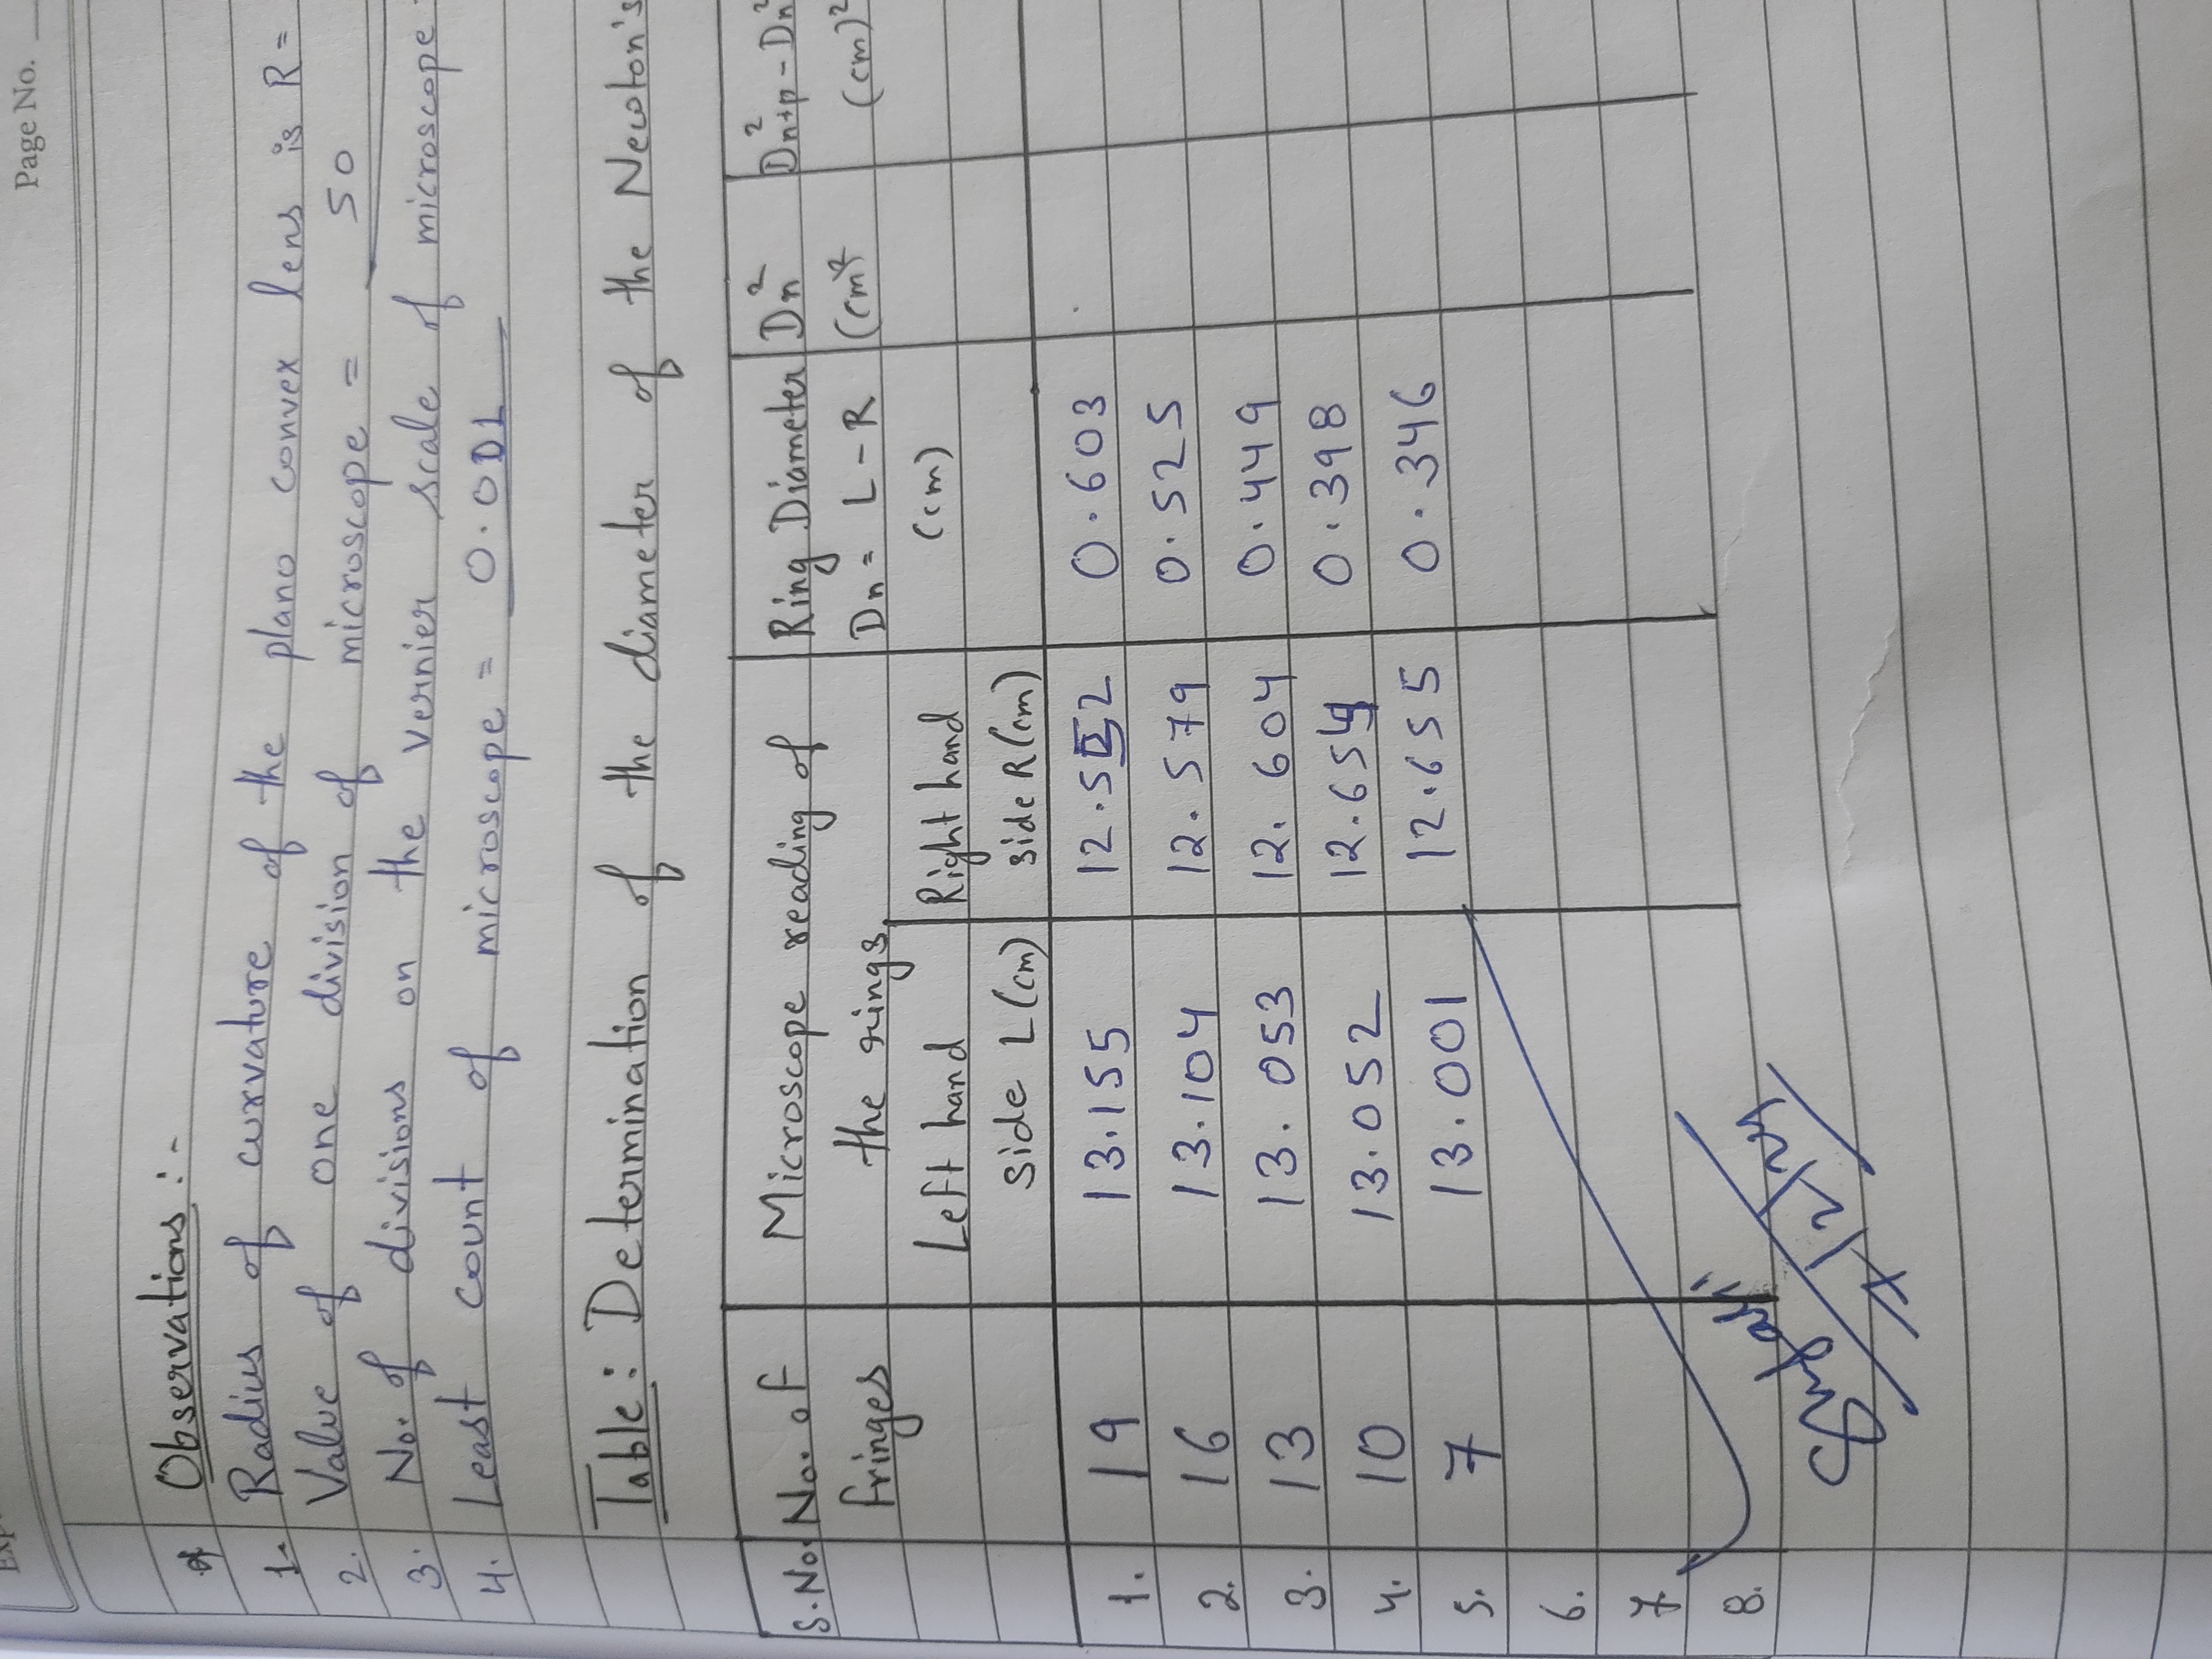 Exp
Page No.
Observations :-
1. Radius of curvature of the plano convex lens is R =
2. Value of one division of microscope = 50
3. No. of divisions on the vernier scale of microscope
4. Least count of microscope = 0.001
Table: Determination of the diameter of the Newton's
S.No. No. of Microscope reading of Ring Diameter Dn² Dn+p² - Dn²
fringes the rings Dn = L - R (cm)² (cm)²
Left hand Right hand (cm)
side L(cm) side R(cm)
1. 19 13.155 12.552 0.603
2. 16 13.104 12.579 0.525
3. 13 13.053 12.604 0.449
4. 10 13.052 12.654 0.398
5. 7 13.001 12.655 0.346
6.
7
8.
7/2/24